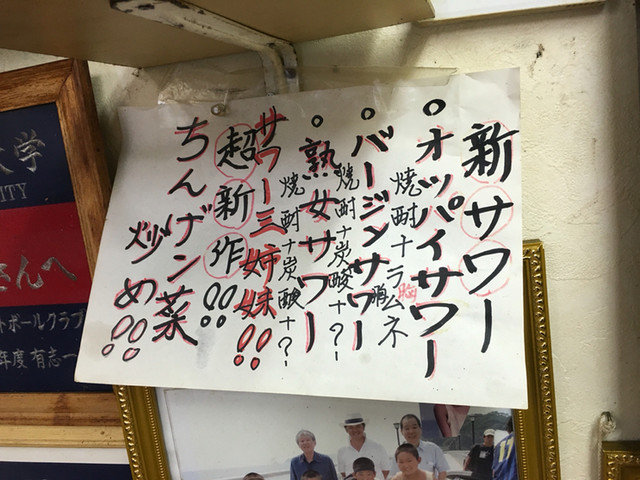 新サワー
○オッパイサワー
焼酎+ラムネ
胸
○バージンサワー
焼酎+炭酸+?
○熟女サワー
焼酎+炭酸+?
サワー三姉妹!!
超新作!!
ちんゲン菜
炒め!!
大学
ITY
さんへ
トボールクラブ
年度有志一